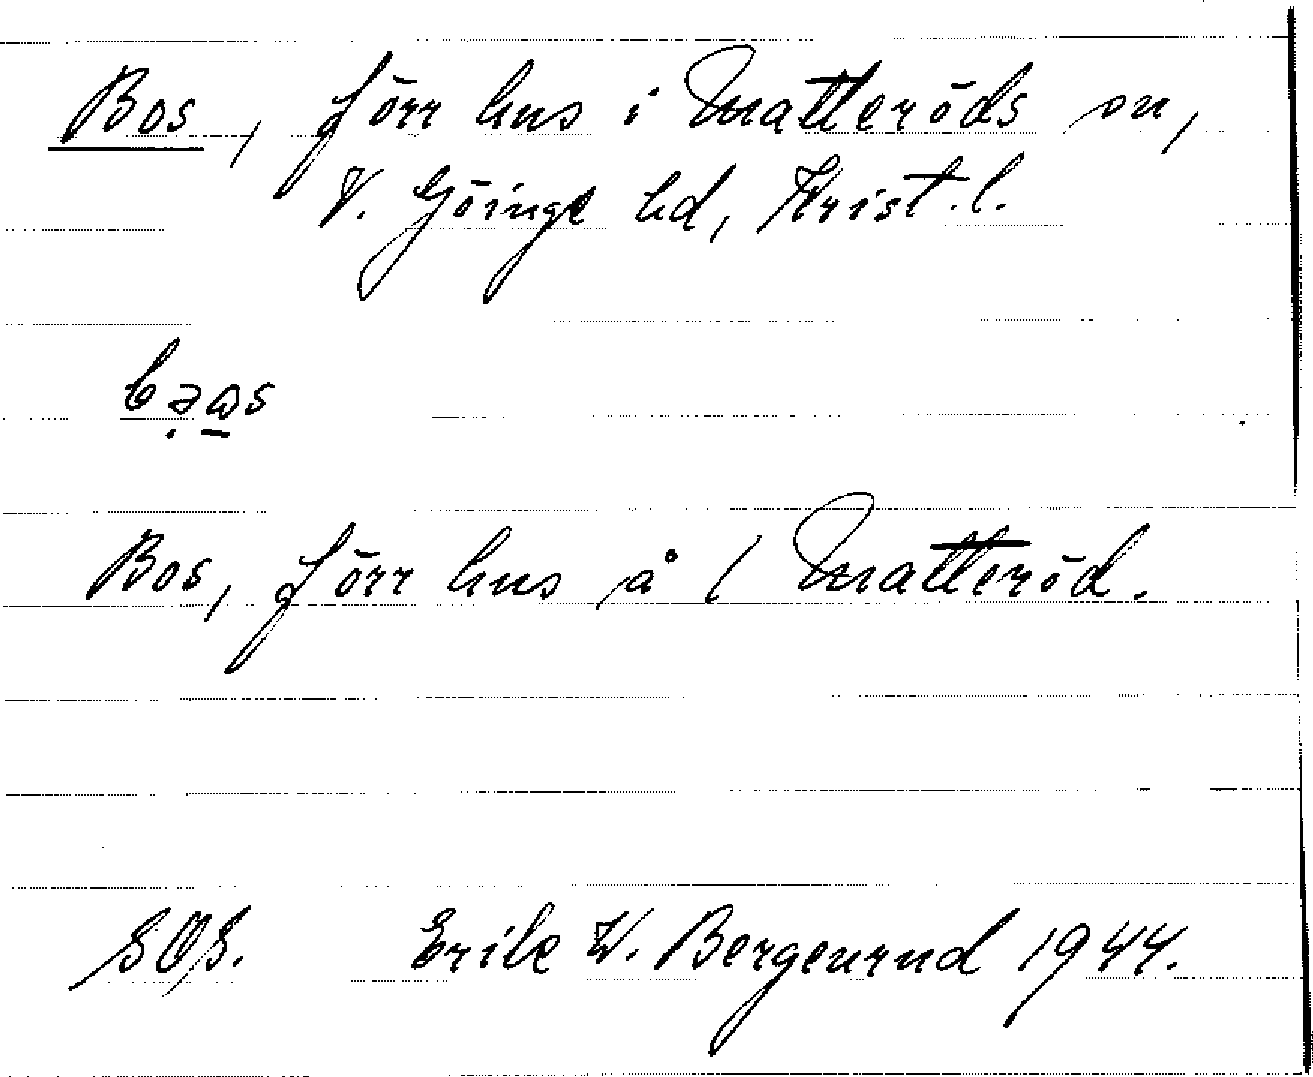 Bos, förr hus i Matteröds sn,
V. Göinge hd, Krist. l.
bə̣ɷ̱s
Bos, förr hus å 1 Matteröd.
SOS. Erik W. Bergenrud 1944.